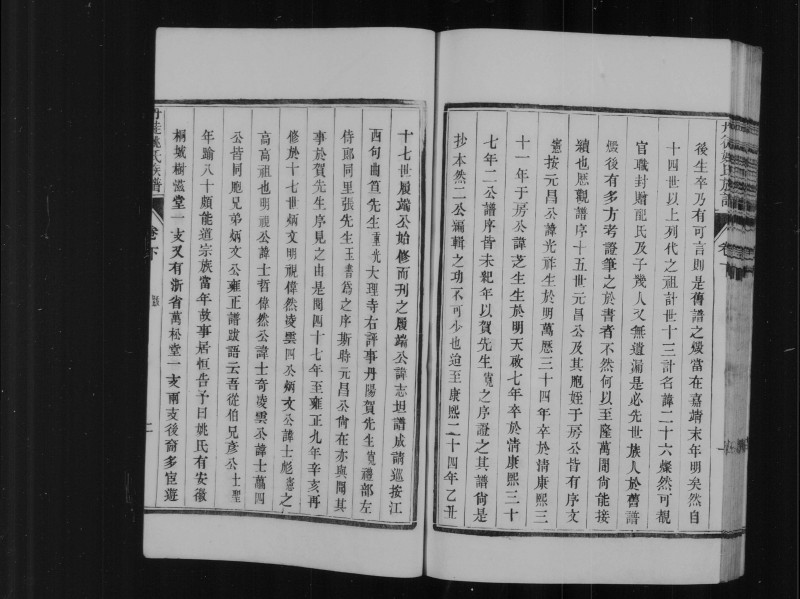 後生卒乃有可言則是舊譜之燬當在嘉靖末年明矣然自
十四世以上列代之祖計世十三計名諱二十六燦然可覩
官職封贈配氏及子幾人又無遺漏是必先世族人於舊譜
燬後有多方考證筆之於書者不然何以至隆萬間尚能接
續也歷觀譜序十五世元昌公及其胞姪于房公皆有序文
按元昌公諱光祚生於明萬歷三十四年卒於清康熙三
十一年于房公諱芝生生於明天啟七年卒於清康熙三十
七年二公譜序皆未紀年以賀先生寬之序證之其譜尚是
抄本然二公編輯之功不可少也迨至康熙二十四年乙丑
十七世履端公始修而刊之履端公諱志坦譜成請巡按江
西句曲笪先生重光大理寺右評事丹陽賀先生寬禮部左
侍郎同里張先生玉書為之序斯時元昌公尚在亦與聞其
事於賀先生序見之由是閱四十七年至雍正九年辛亥再
修於十七世炳文明視偉然凌雲四公炳文公諱士彪憲之
高高祖也明視公諱士哲偉然公諱士奇凌雲公諱士萬四
公皆同胞兄弟炳文公雍正譜跋語云吾從伯兄彥公士聖
年踰八十頗能道宗族當年故事居恒告予曰姚氏有安徽
桐城樹滋堂一支又有浙省萬松堂一支兩支後裔多宦遊
姚氏族譜
卷下
二